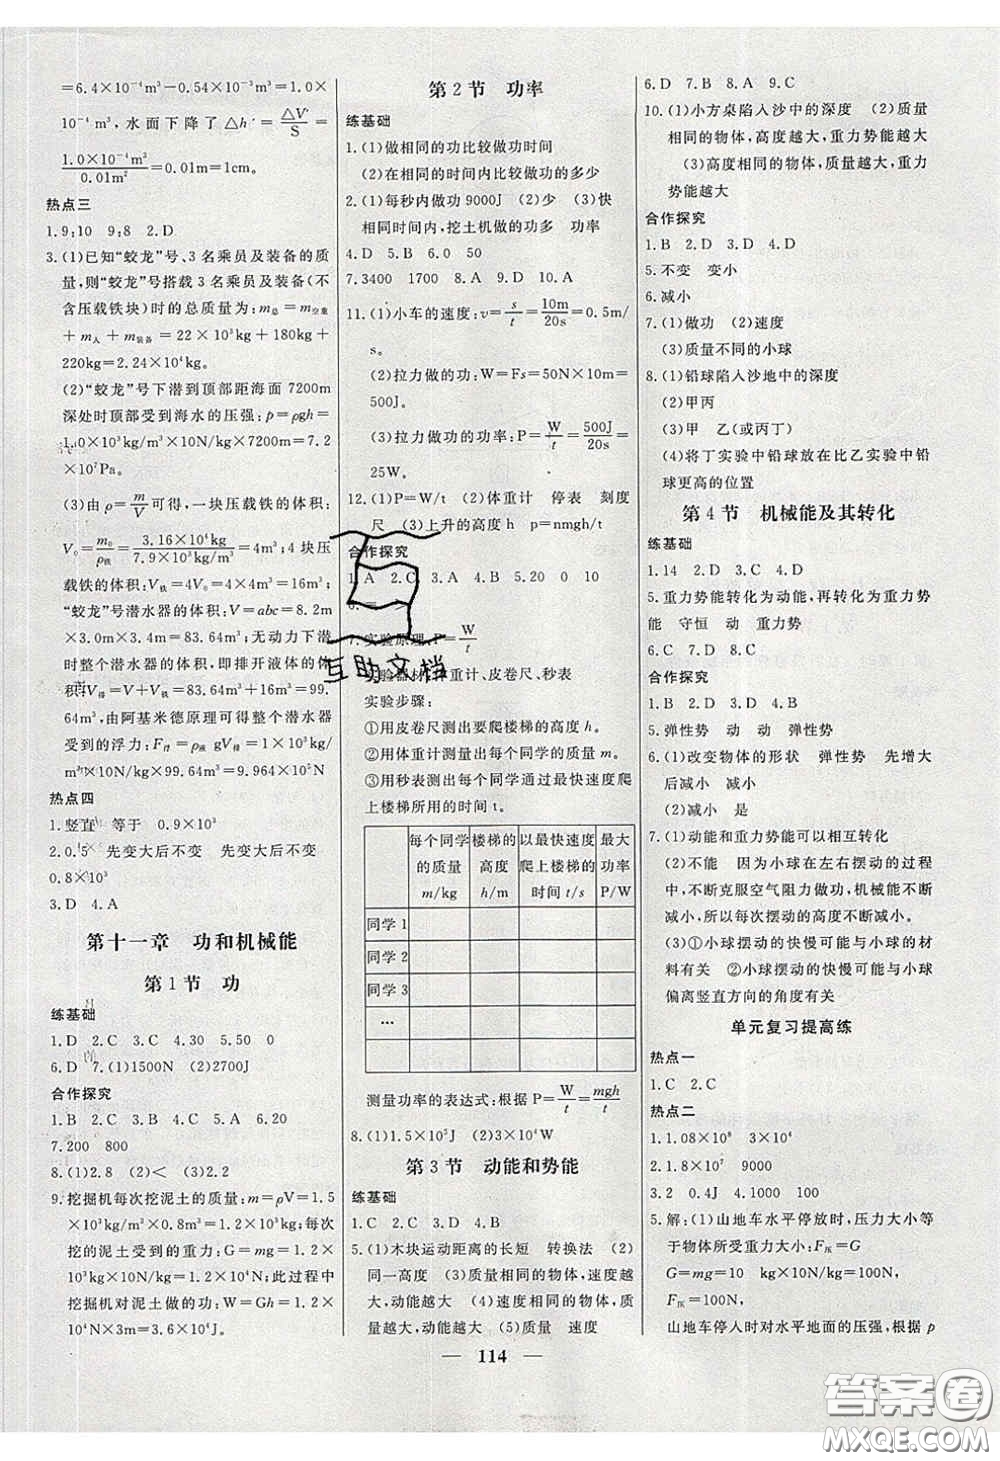 =6.4×10⁻⁴m³−0.54×10⁻⁴m³=1.0×
10⁻⁴m³，水面下降了△h′=△V′/S=
1.0×10⁻⁴m³/0.01m²=0.01m=1cm。
热点三
1.9∶10　9∶8　2.D
3.(1)已知“蛟龙”号、3名乘员及装备的质
量，则“蛟龙”号搭载3名乘员及装备(不
含压载铁块)时的总质量为：m总=m空重
+m人+m装备=22×10³kg+180kg+
220kg=2.24×10⁴kg；
(2)“蛟龙”号下潜到顶部距海面7200m
深处时顶部受到海水的压强：p=ρgh=
1.0×10³kg/m³×10N/kg×7200m=7.2
×10⁷Pa。
(3)由ρ=m/V可得，一块压载铁的体积：
V₀=m₀/ρ铁=3.16×10⁴kg/7.9×10³kg/m³=4m³；4块压
载铁的体积：V铁=4V₀=4×4m³=16m³；
“蛟龙”号潜水器的体积：V=abc=8.2m
×3.0m×3.4m=83.64m³；无动力下潜时
整个潜水器的体积，即排开液体的体
积：V排=V+V铁=83.64m³+16m³=99.
64m³，由阿基米德原理可得整个潜水器
受到的浮力：F浮=ρ液gV排=1.0×10³kg/
m³×10N/kg×99.64m³=9.964×10⁵N
热点四
1.竖直　等于　0.9×10³
2.0.5　先变大后不变　先变大后不变
0.8×10³
3.D　4.A
第十一章　功和机械能
第1节　功
练基础
1.D　2.C　3.C　4.30　5.50　0
6.D　7.(1)1500N　(2)2700J
合作探究
1.B　2.C　3.B　4.C　5.A　6.20
7.200　800
8.(1)2.8　(2)<　(3)2.2
9.挖掘机每次挖泥土的质量：m=ρV=1.5
×10³kg/m³×0.8m³=1.2×10³kg；每次
挖的泥土受到的重力：G=mg=1.2×
10³kg×10N/kg=1.2×10⁴N；此过程中
挖掘机对泥土做的功：W=Gh=1.2×
10⁴N×3m=3.6×10⁴J。
第2节　功率
练基础
1.(1)做相同的功比较做功时间
(2)在相同的时间内比较做功的多少
2.(1)每秒内做功9000J　(2)少　(3)快
相同时间内，挖土机做的功多　功率
4.D　5.B　6.0　50
7.3400　1700　8.C　9.D　10.A
11.(1)小车的速度：v=s/t=10m/20s=0.5m/
s。
(2)拉力做的功：W=Fs=50N×10m=
500J。
(3)拉力做功的功率：P=W/t=500J/20s=
25W。
12.(1)P=W/t　(2)体重计　停表　刻度
尺　(3)上升的高度h　p=nmgh/t
合作探究
1.A　2.C　3.A　4.B　5.20　0　10
6.=
7.实验原理：P=W/t
实验器材：体重计、皮卷尺、秒表
实验步骤：
①用皮卷尺测出要爬楼梯的高度h。
②用体重计测量出每个同学的质量m。
③用秒表测出每个同学通过最快速度爬
上楼梯所用的时间t。
每个同学的质量m/kg　楼梯的高度h/m　以最快速度爬上楼梯的时间t/s　最大功率P/W
同学1
同学2
同学3
…
测量功率的表达式：根据P=W/t=mgh/t
8.(1)1.5×10⁵J　(2)3×10⁴W
第3节　动能和势能
练基础
1.C　2.C　3.D　4.B
5.(1)木块运动距离的长短　转换法　(2)
同一高度　(3)质量相同的物体，速度越
大，动能越大　(4)速度相同的物体，质量
越大，动能越大　(5)质量　速度
6.D　7.B　8.A　9.C
10.(1)小方桌陷入沙中的深度　(2)质量
相同的物体，高度越大，重力势能越大
(3)高度相同的物体，质量越大，重力
势能越大
合作探究
1.B　2.D　3.D　4.B
5.不变　变小
6.减小
7.(1)做功　(2)速度
(3)质量不同的小球
8.(1)铅球陷入沙地中的深度
(2)甲丙
(3)甲　乙(或丙丁)
(4)将丁实验中铅球放在比乙实验中铅
球更高的位置
第4节　机械能及其转化
练基础
1.14　2.D　3.C　4.D
5.重力势能转化为动能，再转化为重力势
能　守恒　动　重力势
6.C　7.D　8.C
合作探究
1.B　2.D　3.D　4.B
5.弹性势　动　动　弹性势
6.(1)改变物体的形状　弹性势　先增大
后减小　减小
(2)减小　是
7.(1)动能和重力势能可以相互转化
(2)不能　因为小球在左右摆动的过程
中，不断克服空气阻力做功，机械能不断
减小，所以每次摆动的高度不断减小。
(3)①小球摆动的快慢可能与小球的材
料有关　②小球摆动的快慢可能与小球
偏离竖直方向的角度有关
单元复习提高练
热点一
1.C　2.C
热点二
1.1.08×10⁸　3×10⁴
2.1.62×10⁵　9000
3.2　0.4J　4.1000　100
5.解：(1)山地车水平停放时，压力大小等
于物体所受重力大小：F压=G
G=mg=10　kg×10N/kg=100N，
F压=100N，
山地车停人时对水平地面的压强，根据p
114
互助文档
答案圈
MXQE.COM